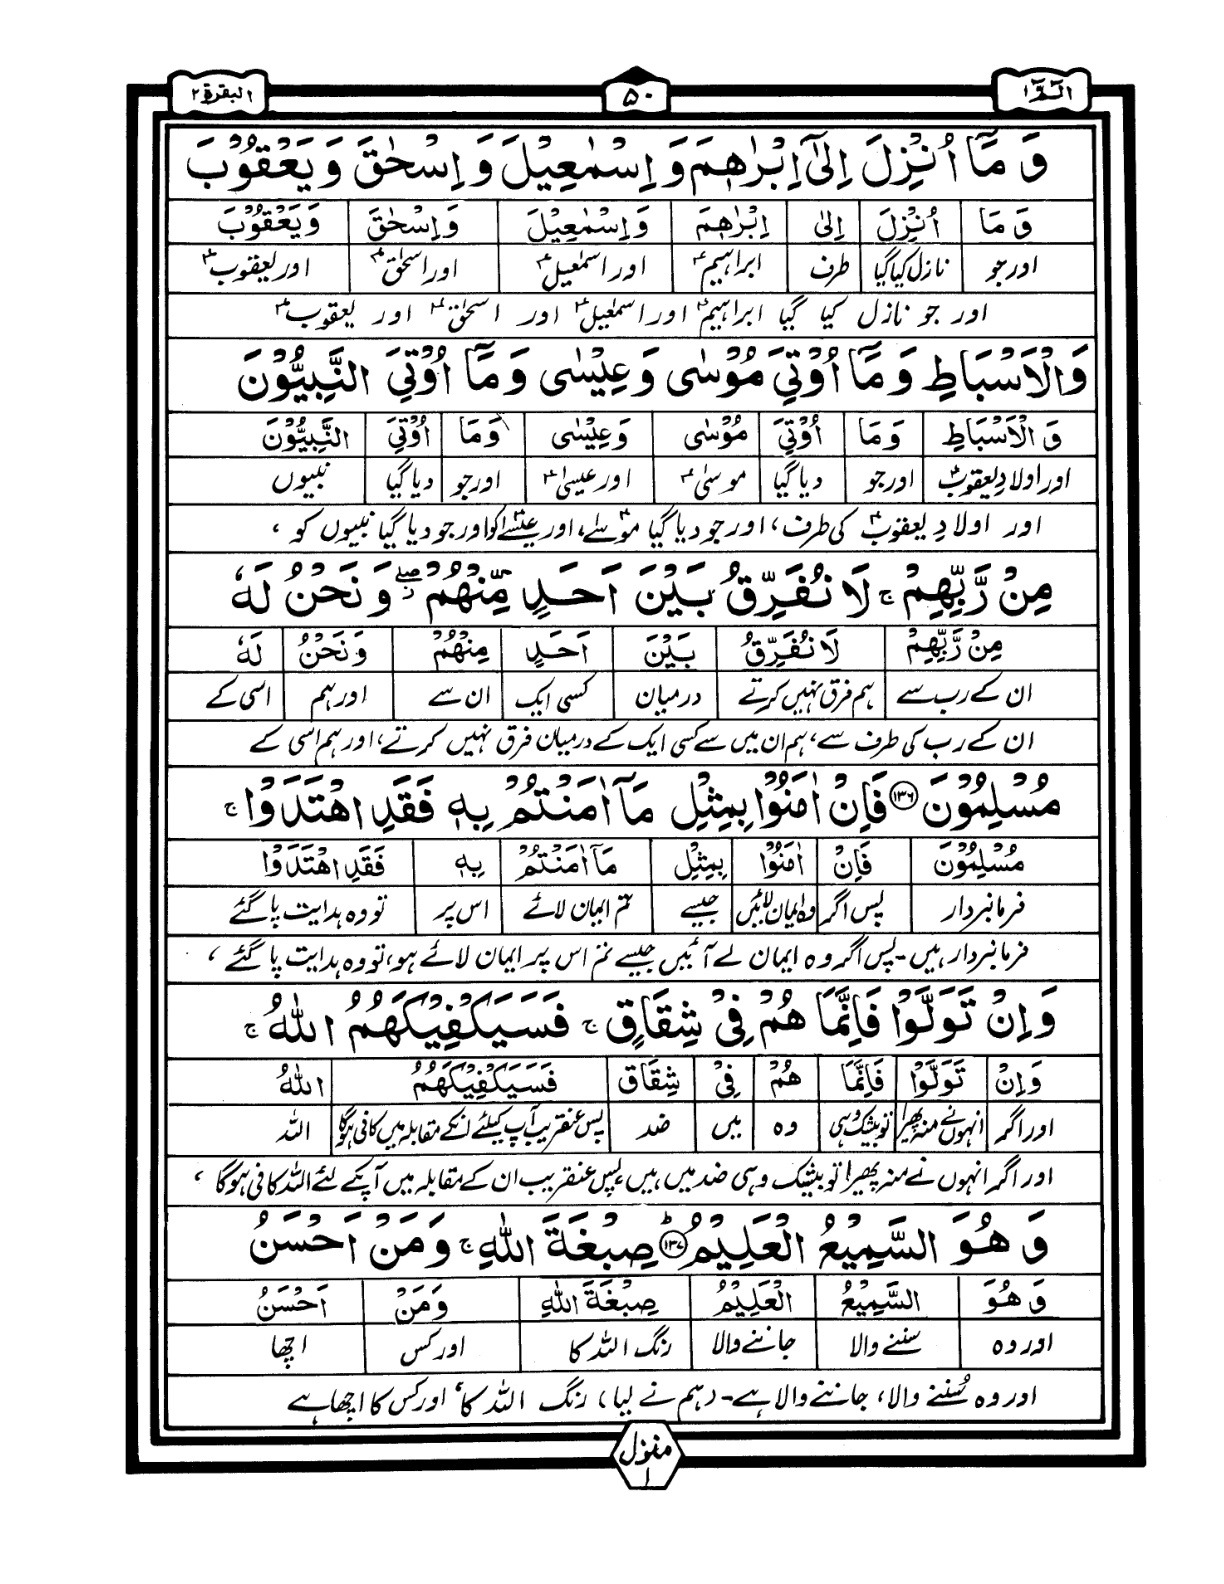 الٓمّٓ ۱
۵۰
البقرة ۲
وَ مَاۤ اُنْزِلَ اِلٰۤى اِبْرٰهٖمَ وَ اِسْمٰعِیْلَ وَ اِسْحٰقَ وَ یَعْقُوْبَ
وَ مَا اُنْزِلَ اِلٰى اِبْرٰهٖمَ وَ اِسْمٰعِیْلَ وَ اِسْحٰقَ وَ یَعْقُوْبَ
اور جو نازل کیا گیا طرف ابراہیمؑ اور اسمٰعیلؑ اور اسحٰقؑ اور یعقوبؑ
اور جو نازل کیا گیا ابراہیمؑ اور اسمٰعیلؑ اور اسحٰقؑ اور یعقوبؑ
وَالْاَسْبَاطِ وَ مَاۤ اُوْتِیَ مُوْسٰى وَ عِیْسٰى وَ مَاۤ اُوْتِیَ النَّبِیُّوْنَ
وَ الْاَسْبَاطِ وَمَا اُوْتِیَ مُوْسٰى وَ عِیْسٰى وَمَا اُوْتِیَ النَّبِیُّوْنَ
اور اولادِ یعقوبؑ اور جو دیا گیا موسیٰؑ اور عیسیٰؑ اور جو دیا گیا نبیوں
اور اولادِ یعقوبؑ کی طرف، اور جو دیا گیا موسٰےؑ، اور عیسٰےؑ کو اور جو دیا گیا نبیوں کو ،
مِنْ رَّبِّهِمْ ۚ لَا نُفَرِّقُ بَیْنَ اَحَدٍ مِّنْهُمْ ۖ وَ نَحْنُ لَهٗ
مِنْ رَّبِّهِمْ لَا نُفَرِّقُ بَیْنَ اَحَدٍ مِنْهُمْ وَ نَحْنُ لَهٗ
ان کے رب سے ہم فرق نہیں کرتے درمیان کسی ایک ان سے اور ہم اسی کے
ان کے رب کی طرف سے، ہم ان میں سے کسی ایک کے درمیان فرق نہیں کرتے، اور ہم اسی کے
مُسْلِمُوْنَ ۱۳۶ فَاِنْ اٰمَنُوْا بِمِثْلِ مَاۤ اٰمَنْتُمْ بِهٖ فَقَدِ اهْتَدَوْا ۚ
مُسْلِمُوْنَ فَاِنْ اٰمَنُوْا بِمِثْلِ مَاۤ اٰمَنْتُمْ بِهٖ فَقَدِ اهْتَدَوْا
فرمانبردار پس اگر وہ ایمان لائیں جیسے تم ایمان لائے اس پر تو وہ ہدایت پا گئے
فرمانبردار ہیں - پس اگر وہ ایمان لے آئیں جیسے تم اس پر ایمان لائے ہو، تو وہ ہدایت پا گئے ،
وَ اِنْ تَوَلَّوْا فَاِنَّمَا هُمْ فِیْ شِقَاقٍ ۚ فَسَیَكْفِیْكَهُمُ اللّٰهُ ۚ
وَ اِنْ تَوَلَّوْا فَاِنَّمَا هُمْ فِیْ شِقَاق فَسَیَكْفِیْكَهُمُ اللّٰهُ
اور اگر انہوں نے منہ پھیرا تو بیشک وہی وہ میں ضد پس عنقریب آپ کیلئے انکے مقابلہ میں کافی ہوگا اللہ
اور اگر انہوں نے منہ پھیرا تو بیشک وہی ضد میں ہیں، پس عنقریب ان کے مقابلہ میں آپکے لئے اللہ کافی ہوگا ،
وَ هُوَ السَّمِیْعُ الْعَلِیْمُ ؕ ۱۳۷ صِبْغَةَ اللّٰهِ ۚ وَ مَنْ اَحْسَنُ
وَ هُوَ السَّمِیْعُ الْعَلِیْمُ صِبْغَةَ اللّٰهِ وَمَنْ اَحْسَنُ
اور وہ سننے والا جاننے والا رنگ اللہ کا اور کس اچھا
اور وہ سُننے والا، جاننے والا ہے - (ہم نے لیا) رنگ اللہ کا، اور کس کا اچھا ہے
منزل
۱